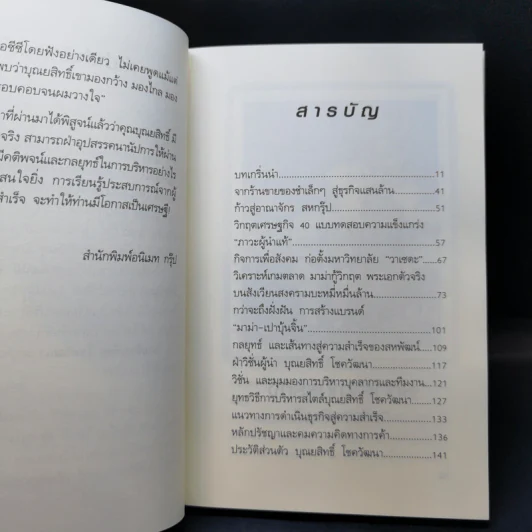 อซีซีโดยฟังอย่างเดียว ไม่เคยพูดแม้แต่
พบว่าบุณยสิทธิ์เขามองกว้าง มองไกล มอง
รอบคอบจนผมวางใจ”
าที่ผ่านมาได้พิสูจน์แล้วว่าคุณบุณยสิทธิ์ มี
จริง สามารถฝ่าอุปสรรคนานัปการให้ผ่าน
มีคติพจน์และกลยุทธ์ในการบริหารอย่างไร
สนใจยิ่ง การเรียนรู้ประสบการณ์จากผู้
สำเร็จ จะทำให้ท่านมีโอกาสเป็นเศรษฐี!
สำนักพิมพ์อนิเมท กรุ๊ป
สารบัญ
บทเกริ่นนำ.....11
จากร้านขายของชำเล็กๆ สู่ธุรกิจแสนล้าน.....41
ก้าวสู่อาณาจักร สหกรุ๊ป.....51
วิกฤตเศรษฐกิจ 40 แบบทดสอบความแข็งแกร่ง
“ภาวะผู้นำแท้”.....57
กิจการเพื่อสังคม ก่อตั้งมหาวิทยาลัย “วาเซดะ”.....67
วิเคราะห์เกมตลาด มาม่ากู้วิกฤต พระเอกตัวจริง
บนสังเวียนสงครามบะหมี่หมื่นล้าน.....73
กว่าจะถึงฝั่งฝัน การสร้างแบรนด์
“มาม่า-เปาบุ้นจิ้น”.....101
กลยุทธ์ และเส้นทางสู่ความสำเร็จของสหพัฒน์.....109
ฝ่าวิชั่นผู้นำ บุณยสิทธิ์ โชควัฒนา.....117
วิชั่น และมุมมองการบริหารบุคลากรและทีมงาน.....121
ยุทธวิธีการบริหารสไตล์บุณยสิทธิ์ โชควัฒนา.....127
แนวทางการดำเนินธุรกิจสู่ความสำเร็จ.....133
หลักปรัชญาและคมความคิดทางการค้า.....136
ประวัติส่วนตัว บุณยสิทธิ์ โชควัฒนา.....141